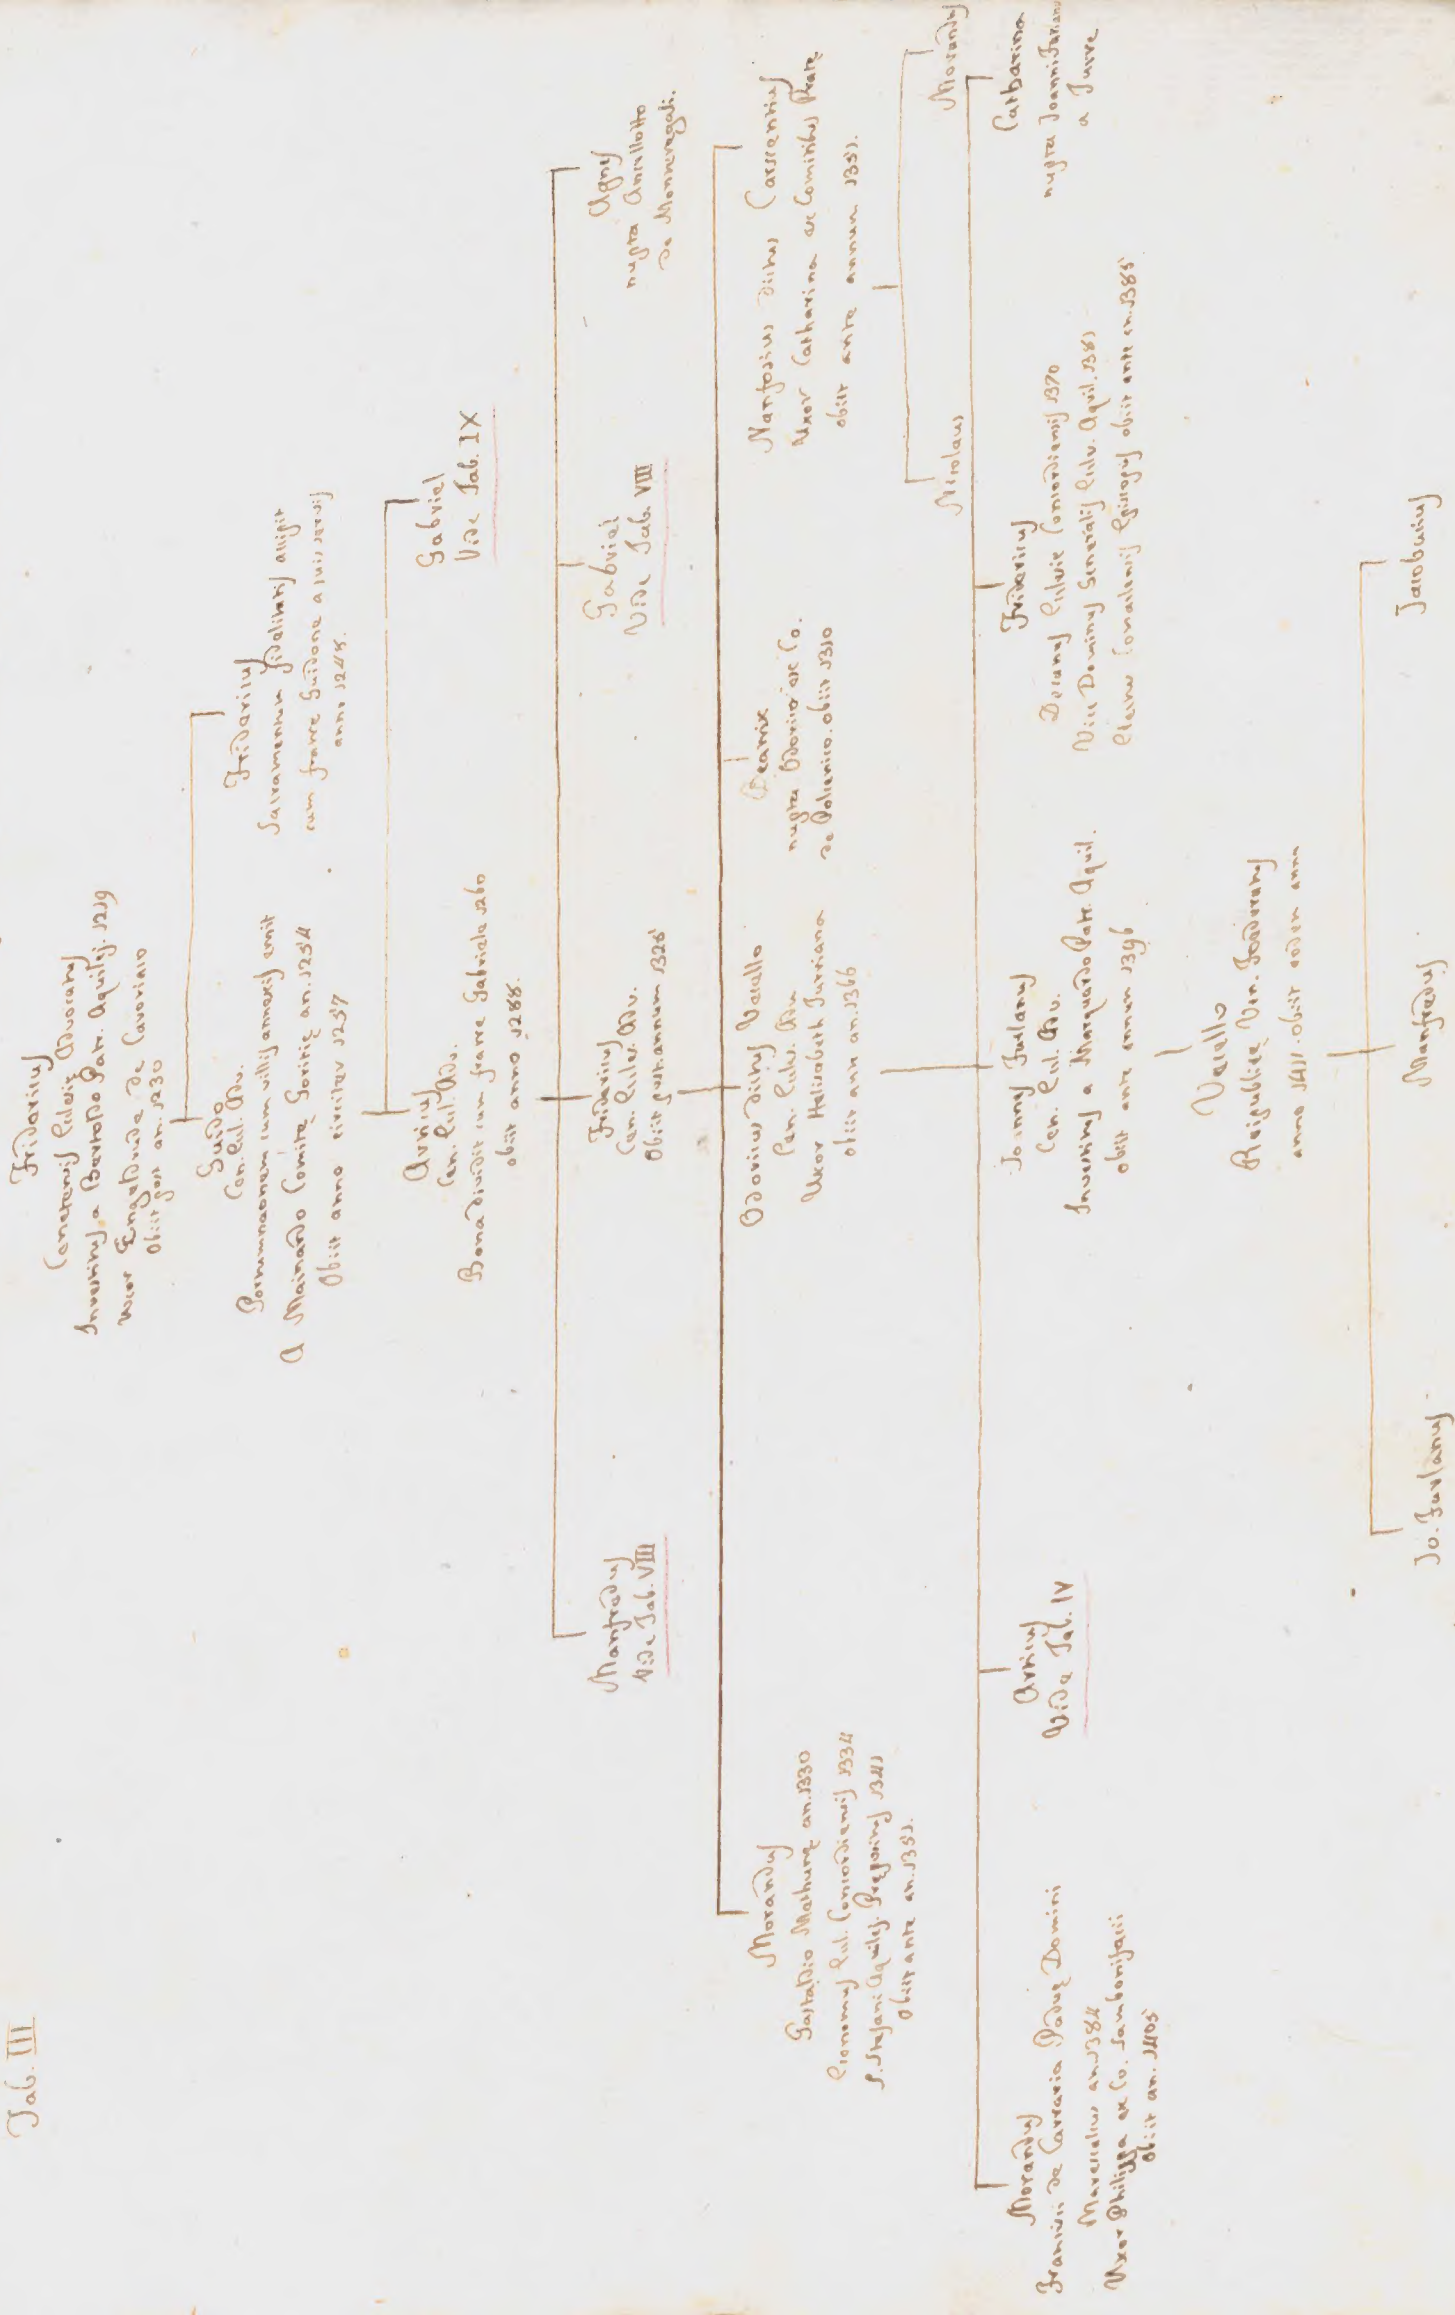 Tab. III
Fridericus
Cenetensis Eccl&aelig; Advocatus
Investitus a Bertoldo Patr. Aquilej. 1219
uxor Engeldruda de Cavoriaco
Obiit post an. 1230
Guido
Cen. Eccl. Adv.
Portumnaonem cum villis annexis emit
A Mainardo Comite Goritię an. 1254
Obiit anno circiter 1257
Fridericus
Sacramentum fidelitatis accipit
cum fratre Guidone a suis servis
anno 1248.
Aricus
Cen. Eccl. Adv.
Bona dividit cum fratre Gabriele 1260
obiit anno 1288.
Gabriel
Vide Tab. IX
Manfredus
Vide Tab. VIII
Fridericus
Cen. Eccles. Adv.
Obiit post annum 1326
Gabriel
Vide Tab. VIII
Agnes
nupta Ancillotto
de Monteregali.
Morandus
Gastaldio Mathunę an. 1330
Canonicus Eccl. Concordiensis 1334
S. Stefani Aquilej. Prępositus 1341
Obiit ante an. 1351.
Odoricus dictus Vecello
Cen. Eccles. Adv.
Uxor Helisabeth Turriana
obiit ante an. 1366
Beatrix
nupta Odorico ex Co.
de Polcenico. obiit 1310
Nanfosius dictus Carscentius
Uxor Catharina ex Comitibus Pratę
obiit ante annum 1351.
Nicolaus
Morandus
Morandus
Francisci de Carraria Paduę Domini
Marescalcus an. 1384
Uxor Philippa ex Co. Sambonifacii
Obiit an. 1405
Aricus
Vide Tab. IV
Joannes Furlanus
Cen. Eccl. Adv.
Investitus a Marquardo Patr. Aquil.
obiit ante annum 1396
Fridericus
Decanus Ecclesie Concordiensis 1370
Vice Dominus Generalis Eccles. Aquil. 1381
Electus Conadensis Episcopus obiit ante an. 1385
Catharina
nupta Joanni Furlano
a Turre
Vecello
Reipublicę Ven. Foederatus
anno 1411. obiit eodem anno
Jo. Furlanus
Manfredus
Jacobucius